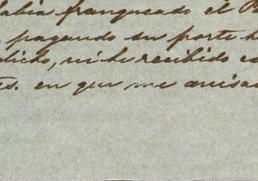 había franqueado el
pagando su porte
dicho, ni he recibido
en que me avisa